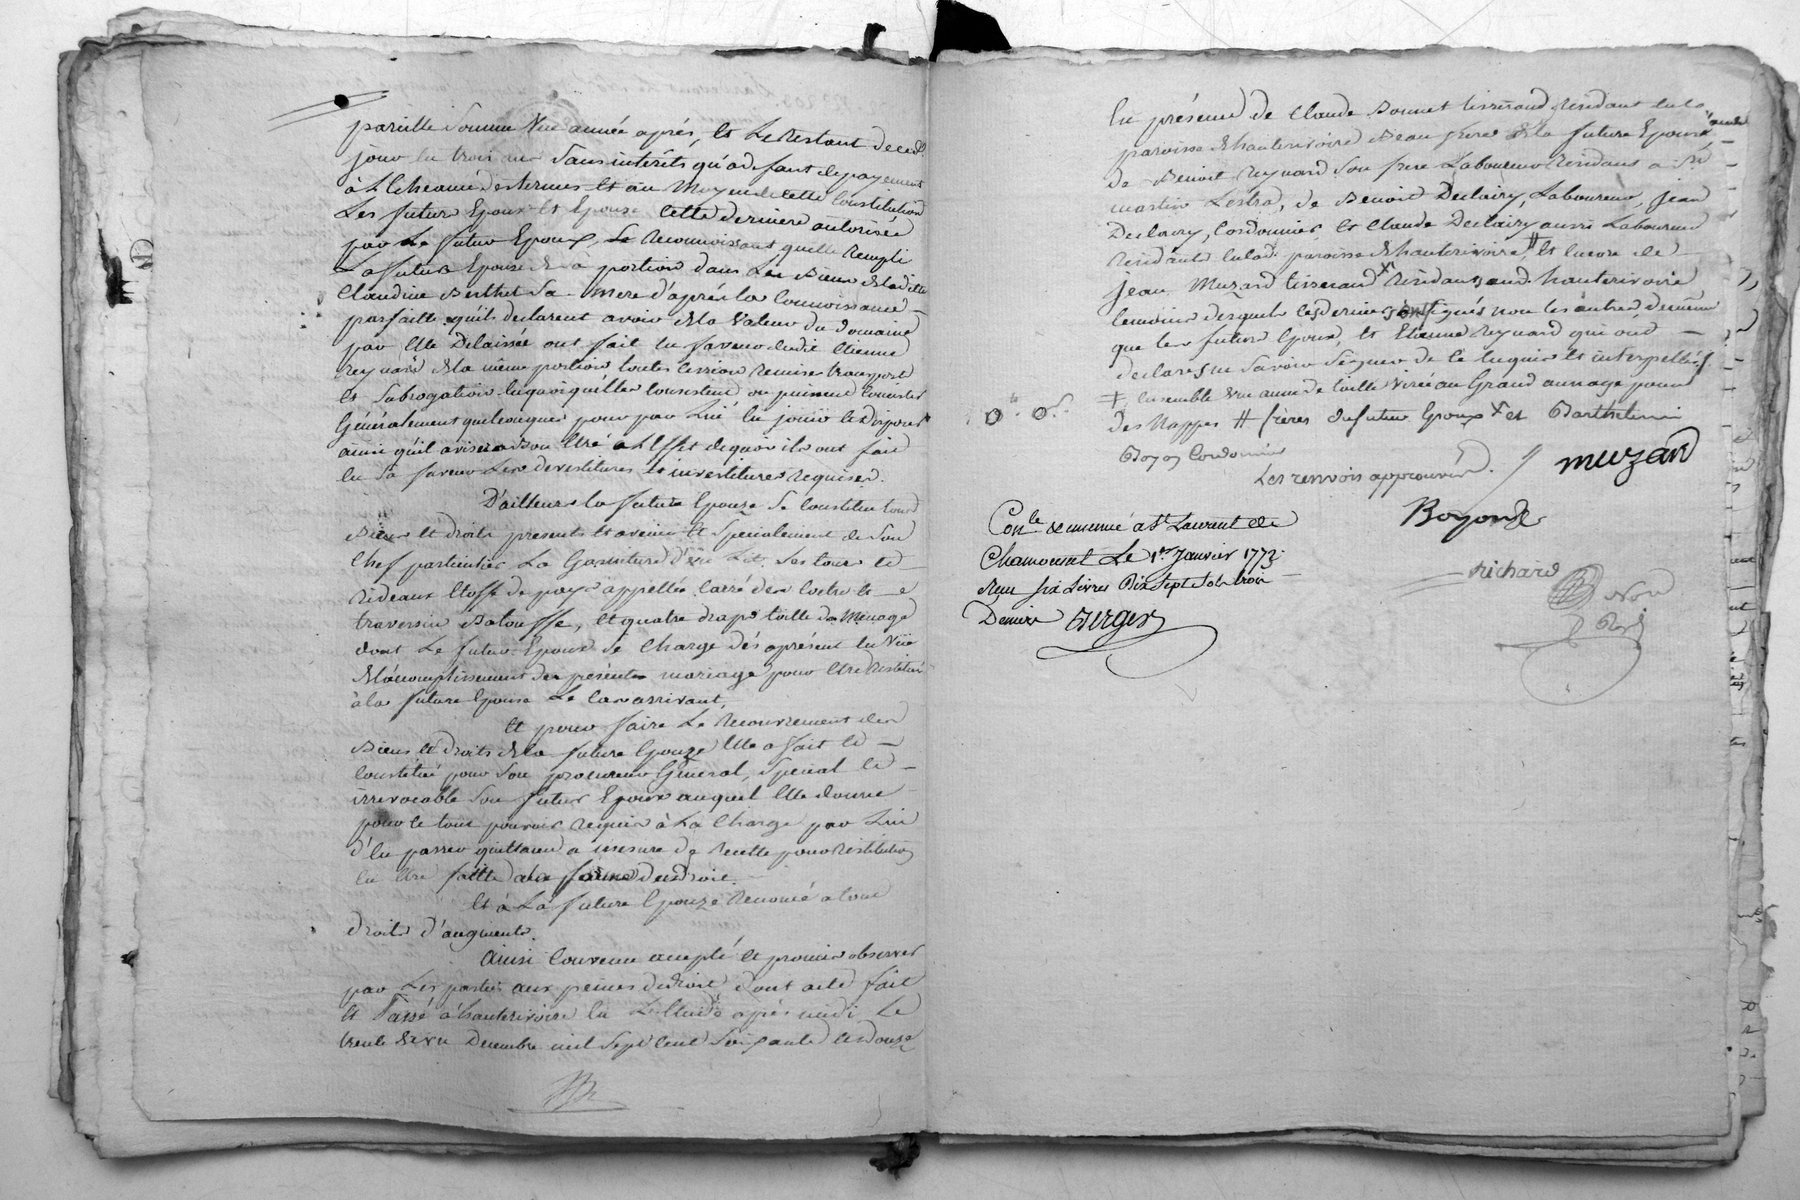 pareille somme une année après, et le restant de ced.
jour en trois ans sans interêts qu'a deffaut de payement
à l'echeance des termes et au moyen de cette constitution
Les futur Epoux et Epouse cette derniere autorisée
par le futur Epoux, se reconnoissant quelle rempli
La future Epouse de sa portion dans les Biens de ladite
Claudine Berthet sa mere d'après la connoissance
parfaitte qu'ils declarent avoir de la valeur du domaine
par elle Delaissée ont fait en faveur dudit Etienne
Reynard de la même portion toutes cession remise transport
et subrogation en quoi qu'elle consistent ou puissent consister
Généralement quelconques pour par Lui en jouir et disposer
ainsi qu'il avisera bon être à l'effet de quoi ils ont fait
en sa faveur les devestitures et investitures requises.
D'ailleurs la future Epouze se constitue tous
Biens et droits presents et avenir et specialement de son
Chef particulier La Garniture d'un Lit, ses tour et
rideaux etoffe de pays appellée carré des coetre et
traversin Balouffe, et quatre draps toille de menage
dont Le futur Epoux se charge dès apresent en vüe
de l'accomplissement des présentes mariage pour être restitué
à la future Epouse Le cas arrivant,
Et pour faire Le recouvrement des
Biens et droits de la future Epouze Elle a fait et
constitué pour son procureur Général, special et
irrevocable son futur Epoux auquel Elle donne
pour le tout pouvoir requis à La charge par Lui
d'en passer quittance a mesure de recette pour restitution
en être faitte à la forme du droit.
Et a La future Epouze renoncé a tous
droits d'augment.
Ainsi convenu accepté et promis observer
par Les parties aux peines de droit dont acte fait
et Passé à hauterivoire en L'Etude après midi Le
trente & un Decembre mil sept cent soixante et douze
En présence de Claude Bonnet tisserand residant en la
paroisse de hauterivoire Beau frere de la future Epouse
de Benoit Reynard son frere Laboureur residant a St
martin Lestra, de Benoit Declairy, Laboureur, jean
Declairy, Cordonnier et Claude Declairy aussi Laboureur
residants en lad. paroisse de hauterivoire # et encore de
jean Muzard tisserand x residant aud. hauterivoire
temoins desquels les derniers ont signés non les autres de même
que les futur Epoux, et Etienne Reynard qui ont
declarés ne savoir signer de ce enquis et interpellés /.
‡ ensemble une aune de toille virée au Grand aunage pour
Des Nappes # frères du futur Epoux x et Barthelemi
Boyon Cordonnier
Les renvois approuvés.
muzard
Boyond
Richard
Non
Roy
Conlé & insinué a St Laurent de
Chamousset Le 1er Janvier 1773.
Reçu six Livres Dix sept sols trois
Deniers Verger